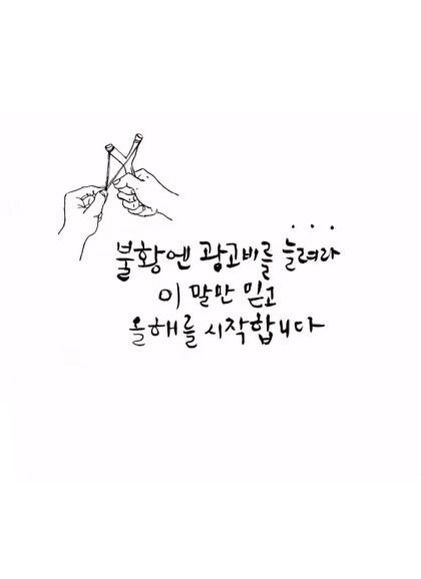 불황엔 광고비를 늘려라
이 말만 믿고
올해를 시작합니다